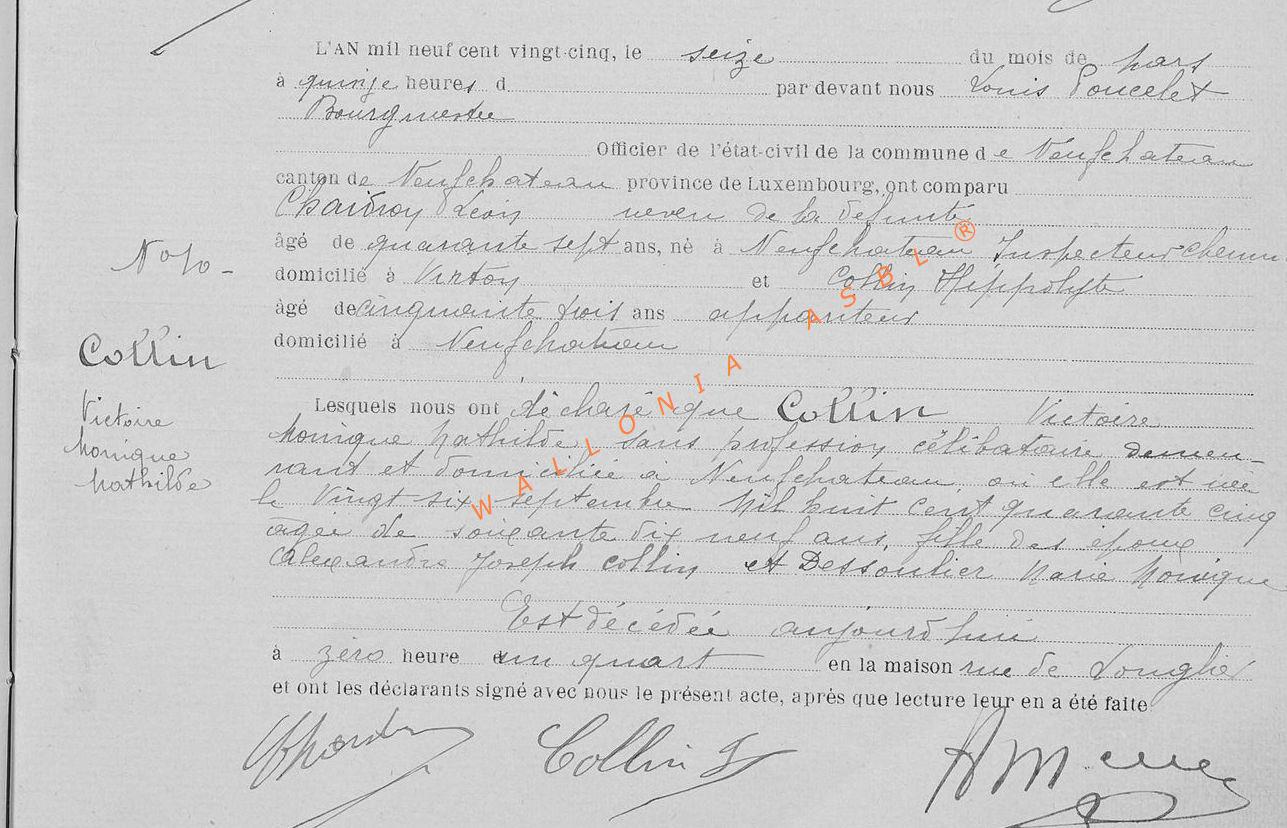 L'AN mil neuf cent vingt-cinq, le seize du mois de Mars
à quinze heures d par devant nous Louis Poncelet
Bourgmestre
Officier de l'état-civil de la commune de Neufchateau
canton de Neufchateau province de Luxembourg, ont comparu
Léon neveu de la defunte
âgé de quarante sept ans, né à Neufchateau Inspecteur chemin
domicilié à Virton et Collin Hippolyte
âgé de cinquante trois ans appariteur
domicilié à Neufchateau
No 10-
Collin
Victoire
Monique
Mathilde
Lesquels nous ont déclaré que Collin Victoire
Monique Mathilde, sans profession célibataire demeu-
rant et domiciliée à Neufchateau, où elle est née
le Vingt-six septembre Mil huit cent quarante cinq
agée de soixante dix neuf ans, fille des époux
Alexandre Joseph Collin et Dessoulier Marie Monique
Est décédée aujourd'hui
à zéro heure un quart en la maison rue de Longlier
et ont les déclarants signé avec nous le présent acte, après que lecture leur en a été faite
Collin
WALLONIA ASBL ®